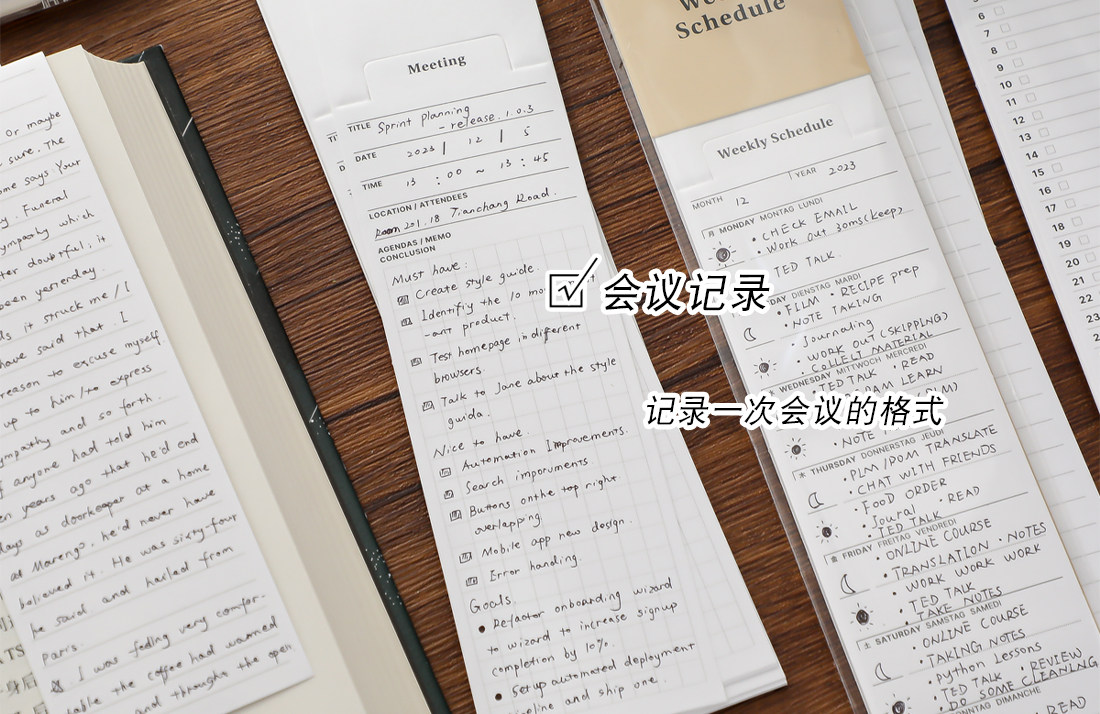 Or maybe
sure. The
says Your
Funeral
sympathy which
doubtful, it
been yesterday.
it struck me / I
have said that. I
reason to excuse myself
up to him / to express
sympathy and so forth.
anyone had told him
years ago that he'd end
days as doorkeeper at a home
at Marengo, he'd never have
believed it. He was sixty-four
he said and hailed from
Paris.
I was feeling very comfor-
table the coffee had warmed
and through the open
Meeting
TITLE Sprint planning
- release. 1.0.3
DATE 2023 / 12 / 5
TIME 13 : 00 ~ 13 : 45
LOCATION / ATTENDEES
Room 201. 18 Tianchang Road.
AGENDAS / MEMO
CONCLUSION
Must have:
Create style guide
Identifiy the 10 mo
-ant product.
Test homepage in different
browsers.
Talk to Jane about the style
guida.
Nice to have.
Automation Improvements.
Search imporuments
Buttons on the top right
overlapping.
Mobile app new design.
Error handing.
Goals
Refactor onboarding wizard
to wizard to increase signup
completion by 10%.
Set up automated deployment
pipeline and ship one.
☑ 会议记录
记录一次会议的格式
Schedule
Weekly Schedule
MONTH 12 YEAR 2023
月 MONDAY MONTAG LUNDI
• CHECK EMAIL
• Work out 30ms(keep)
TED TALK
DAY DIENSTAG MARDI
• FILM • RECIPE prep
• NOTE TAKING
• Journaling
• WORK OUT (SKIPPING)
• COLLECT MATERIAL
WEDNESDAY MITTWOCH MERCREDI
• TED TALK • READ
LEARN
• NOTE
THURSDAY DONNERSTAG JEUDI
• PLM/POM TRANSLATE
• CHAT WITH FRIENDS
• FOOD ORDER
• Joural • READ
• TED TALK
FRIDAY FREITAG VENDREDI
• ONLINE COURSE
• TRANSLATION • NOTES
• WORK WORK WORK
• TED TALK
• TAKE NOTES
SATURDAY SAMSTAG SAMEDI
• ONLINE COURSE
• TAKING NOTES
• python Lessons
• TED TALK • REVIEW
• DO SOME CLEANING
SONNTAG DIMANCHE
READ
6
7
8
9
10
11
12
13
14
15
16
17
18
19
20
21
22